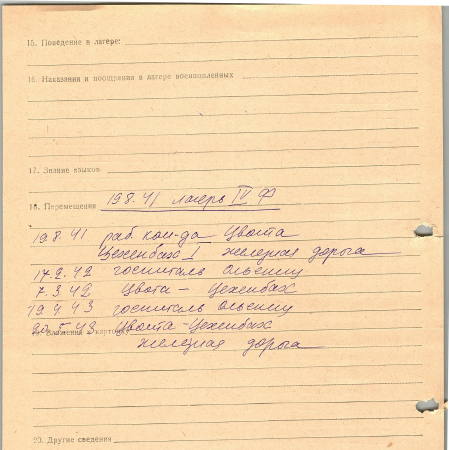 15. Поведение в лагере:
16. Наказания и поощрения в лагере военнопленных
17. Знание языков
18. Перемещения 19.8.41 лагерь IV Ф
19.8.41 раб. ком-да Цвота
Цехенбах I железная дорога
17.2.42 госпиталь
7.3.42 Цвота - Цехенбах
19.4.43 госпиталь
20.5.43 Цвота-Цехенбах
железная дорога
20. Другие сведения